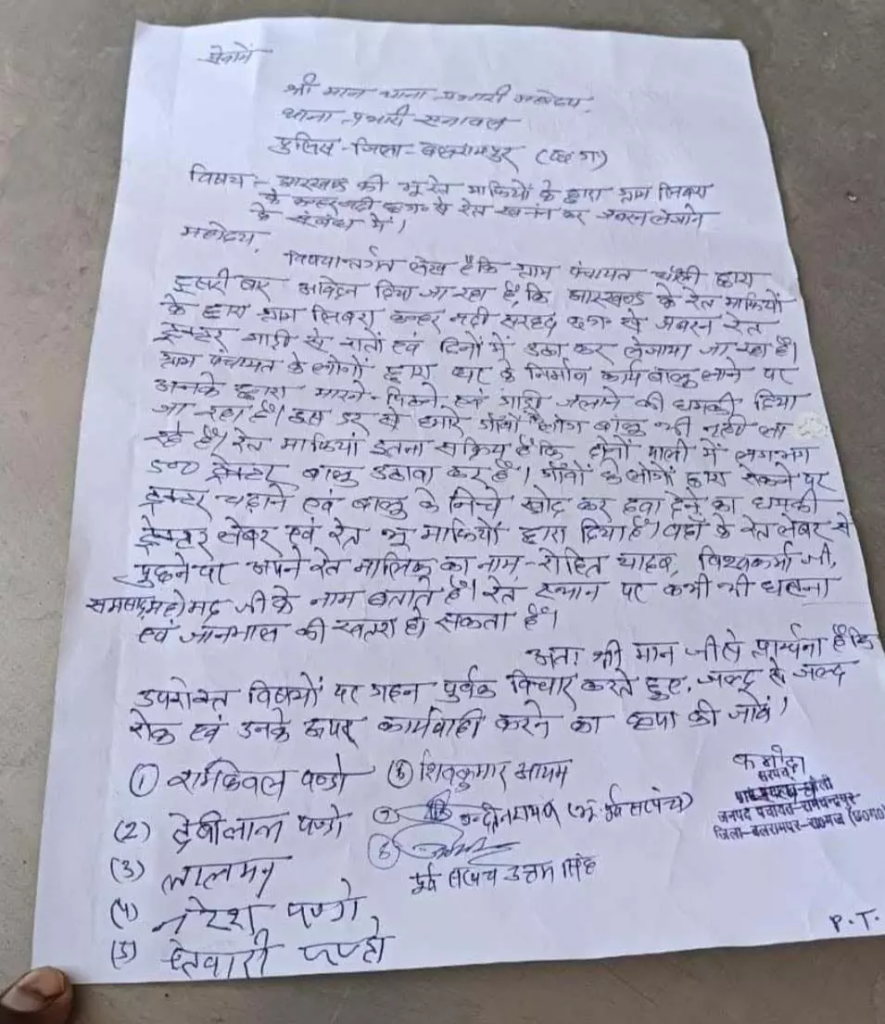 सेवामें
श्री मान थाना प्रभारी महोदय,
थाना प्रभारी सनावल
पुलिस-जिला-बलरामपुर (छ.ग)
विषय:- झारखण्ड की भू रेत माफियों के द्वारा ग्राम
के कन्हर नदी से रेत खनन कर जबरन लेजाने
के संबंध में।
महोदय,
विषयान्तर्गत लेख है कि ग्राम पंचायत द्वारा
दुसरी बार आवेदन दिया जा रहा है, कि झारखण्ड के रेत माफियों
के द्वारा ग्राम कन्हर नदी सरहद से जबरन रेत
ट्रेक्टर गाड़ी से रातों एवं दिनों में उठा कर लेजाया जा रहा है।
ग्राम पंचायत के लोगों द्वारा घर के निर्माण कार्य बालू लाने पर
उनके द्वारा मारने-पिटने एवं गाड़ी जलाने की धमकी दिया
जा रहा है। इस डर से हमारे गाँवों लोग बालू भी नहीं ला
रहे है। रेत माफियां इतना सक्रिय है कि दोनों पाली में लगभग
ट्रेक्टर बालू उठावा कर है। गाँवों के लोगों द्वारा रोकने पर
ट्रेक्टर चढ़ाने एवं बालू के निचे खोद कर दबा देने का धमकी
ट्रेक्टर लेबर एवं रेत भू माफियों द्वारा दिया है। वहाँ के रेत लेबर से
पुछने पर अपने रेत मालिक का नाम,- रोहित यादव, विश्वकर्मा जी,
जी के नाम बताते है। रेत स्थान पर कभी भी घटना
एवं जानमाल की खतरा हो सकता है।
अतः श्री मान जी से प्रार्थना है कि
उपरोक्त विषयों पर गहन पुर्वक विचार करते हुए, जल्द से जल्द
रोक एवं उनके ऊपर कार्यवाही करने का कृपा की जावें।
(1) रामकेवल पण्डो (6) शिवकुमार आयम
(2) देवीलाल पण्डो (7) (भू. पूर्व सरपंच)
(3) लालमन (8)
पूर्व सरपंच उत्तम सिंह
(4) नरेश पण्डो
(5) पण्डो
सरपंच
जनपद पंचायत-रामचन्द्रपुर
जिला-बलरामपुर-रा०गंज (छ०ग०)
P.T.